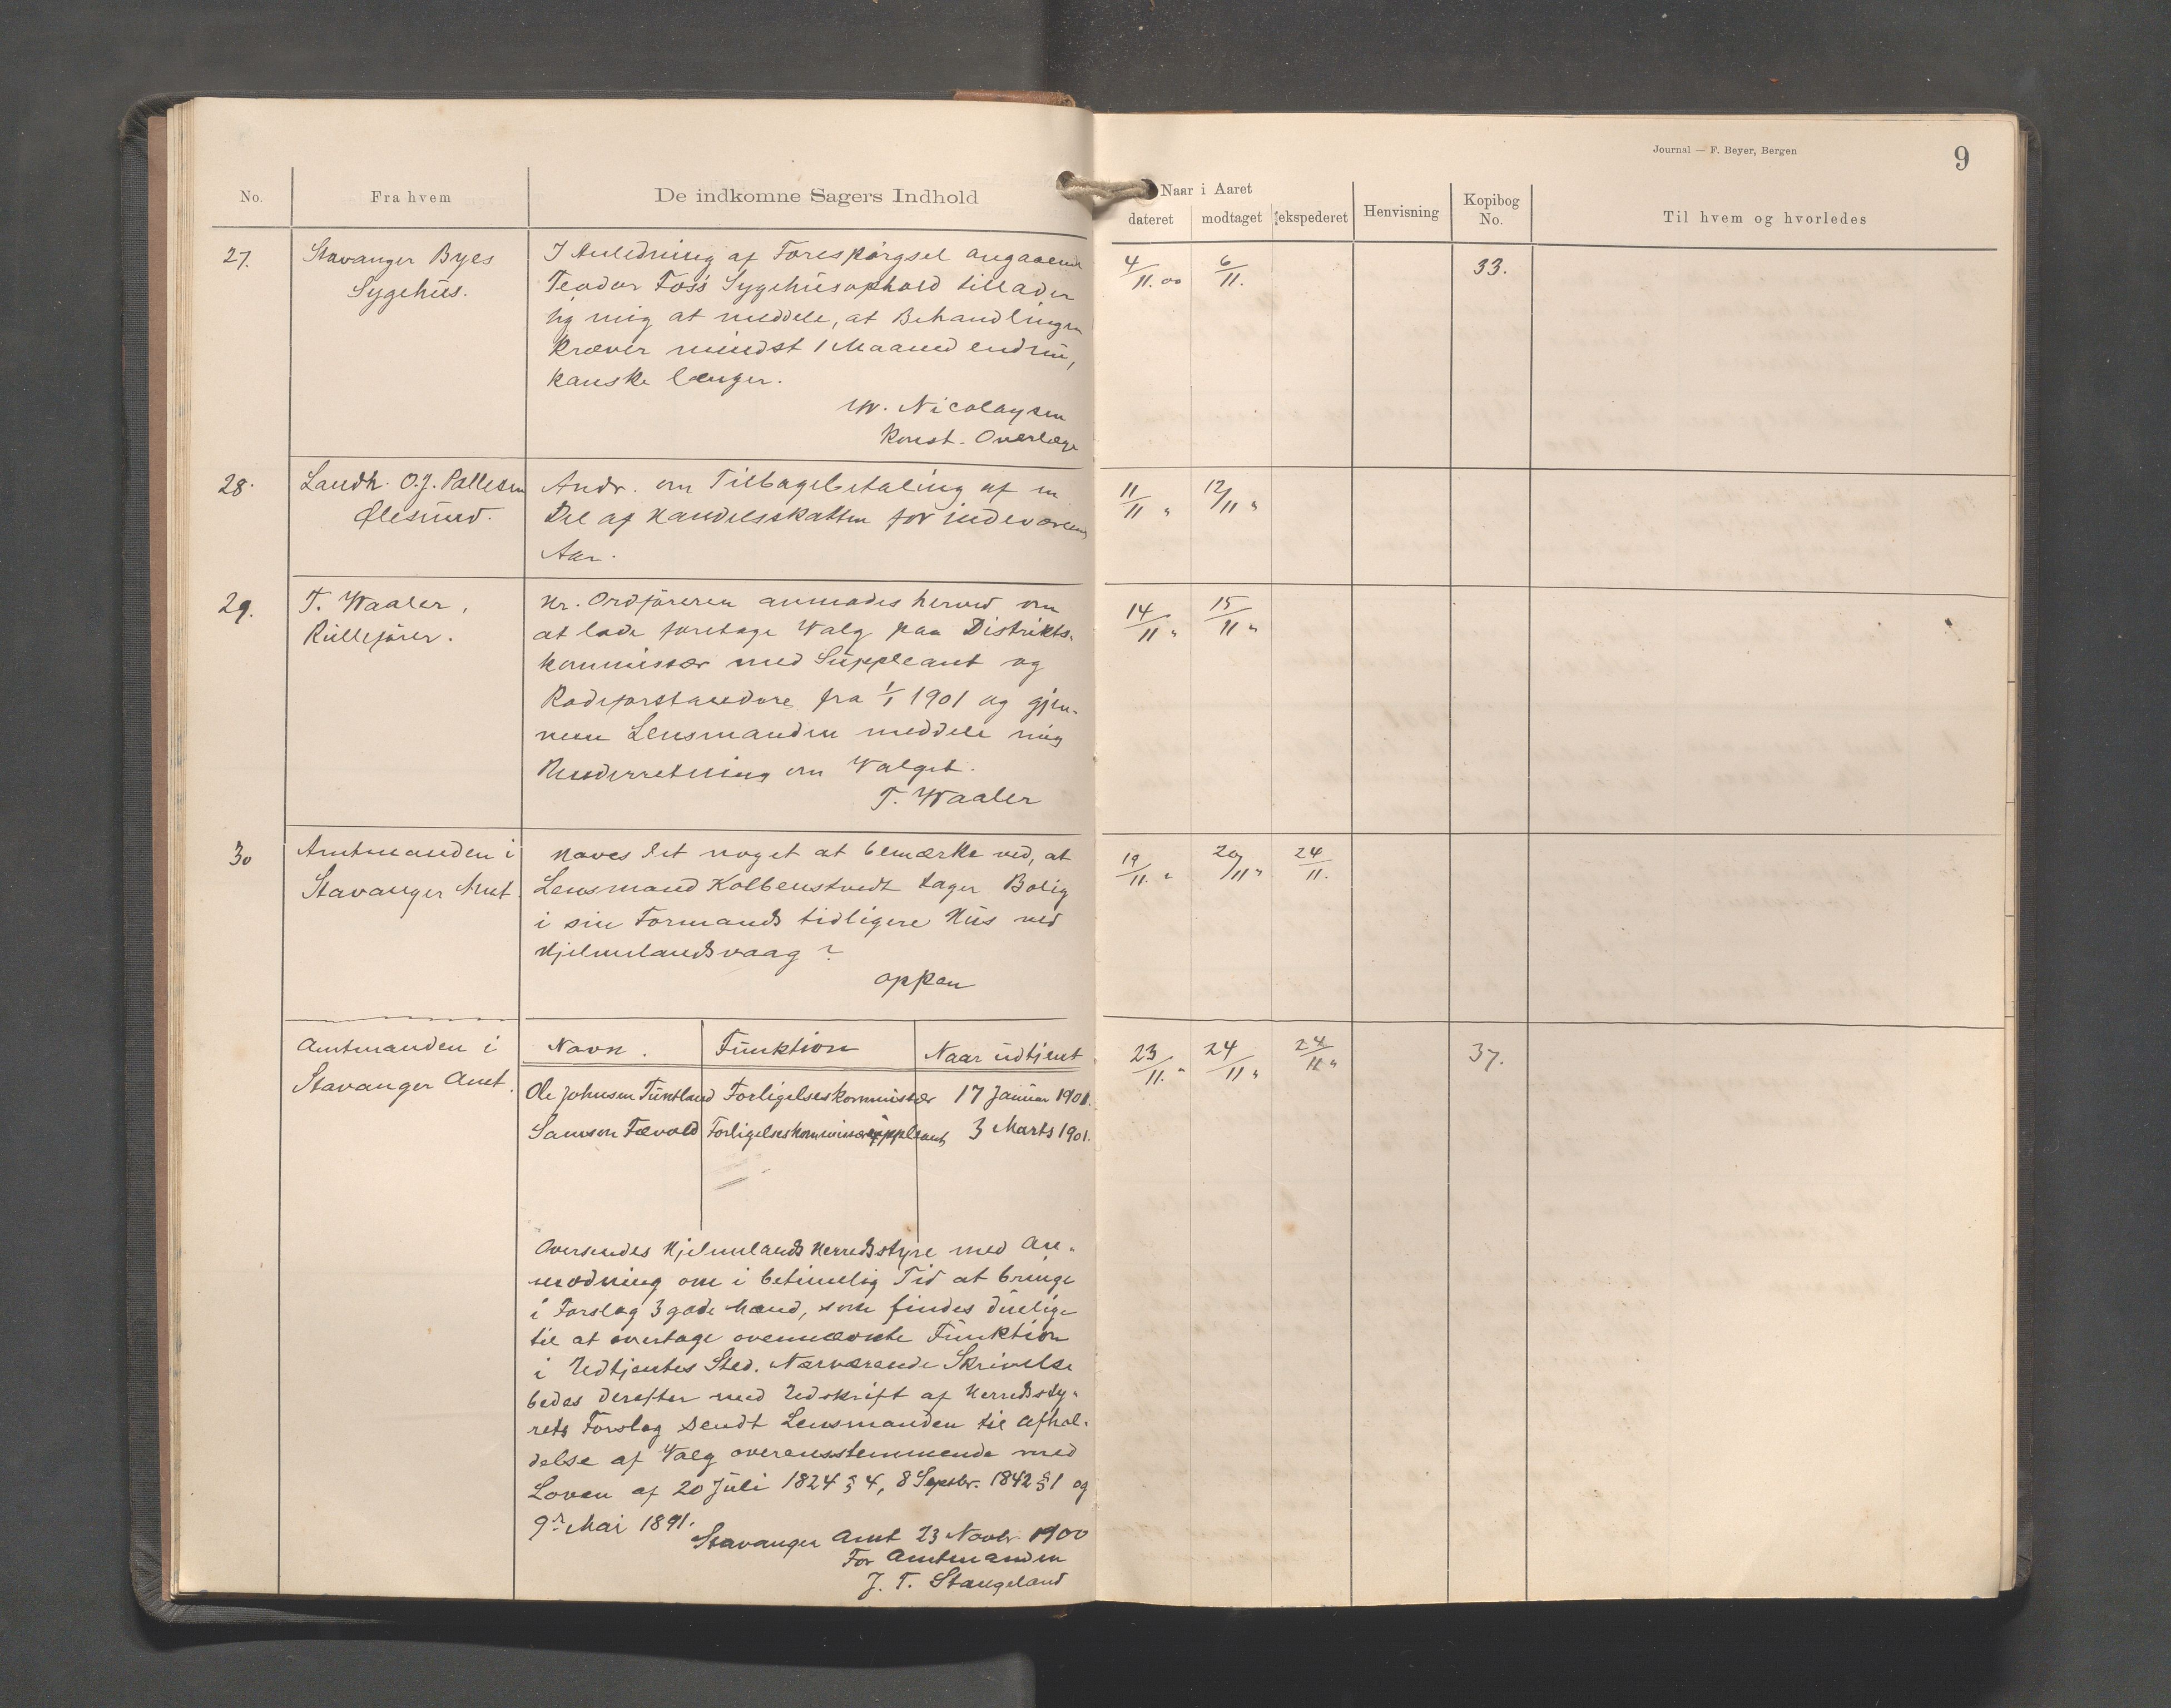 Journal — F. Beyer, Bergen
9
No.
Fra hvem
De indkomne Sagers Indhold
Naar i Aaret
dateret
modtaget
ekspederet
Henvisning
Kopibog No.
Til hvem og hvorledes
27.
Stavanger Byes
Sygehus.
I Anledning af Forespørgsel angaaende
Teodor Foss Sygehusophold tillader
jeg mig at meddele, at Behandlingen
kræver mindst 1 Maaned endnu,
kanske længer.
W. Nicolaysen
Konst. Overlæge
4/11.00
6/11.
33.
28.
Landh. O.J. Pallesen
Ølesund.
Andr. om Tilbagebetaling af en
Del af Handelsskatten for indeværende
Aar.
11/11 "
12/11 "
29.
T. Waaler,
Rullefører.
Hr. Ordføreren anmodes herved om
at lade foretage Valg paa Distrikts-
kommissær med Suppleant og
Rodeforstandere fra 1/1 1901 og gjen-
nem Lensmanden meddele mig
Underretning om Valget.
T. Waaler
14/11 "
15/11 "
30
Amtmanden i
Stavanger Amt.
Haves det noget at bemærke ved, at
Lensmand Kolbenstvedt tager Bolig
i sin Formands tidligere Hus ved
Hjelmelandsvaag?
Oppen
19/11. "
20/11 "
24/11.
Amtmanden i
Stavanger Amt.
Navn.
Funktion
Naar udtjent
Ole Johnsen Tuntland Forligelseskommissær 17 Januar 1901.
Samson Fævold Forligelseskommissærsuppleant 3 Marts 1901.
23/11. "
24/11 "
24/11 "
37.
Oversendes Hjelmelands Herredsstyre med An-
modning om i betimelig Tid at bringe
i Forslag 3 gode Mænd, som findes duelige
til at overtage ovennævnte Funktion
i Udtjentes Sted. Nærværende Skrivelse
bedes derefter med Udskrift af Herredssty-
rets Forslag sendt Lensmanden til Afhol-
delse af Valg overensstemmende med
Loven af 20 Juli 1824 § 4, 8 Septbr. 1842 § 1 og
9de Mai 1891.
Stavanger Amt 23 Novbr 1900
For Amtmanden
J. T. Stangeland